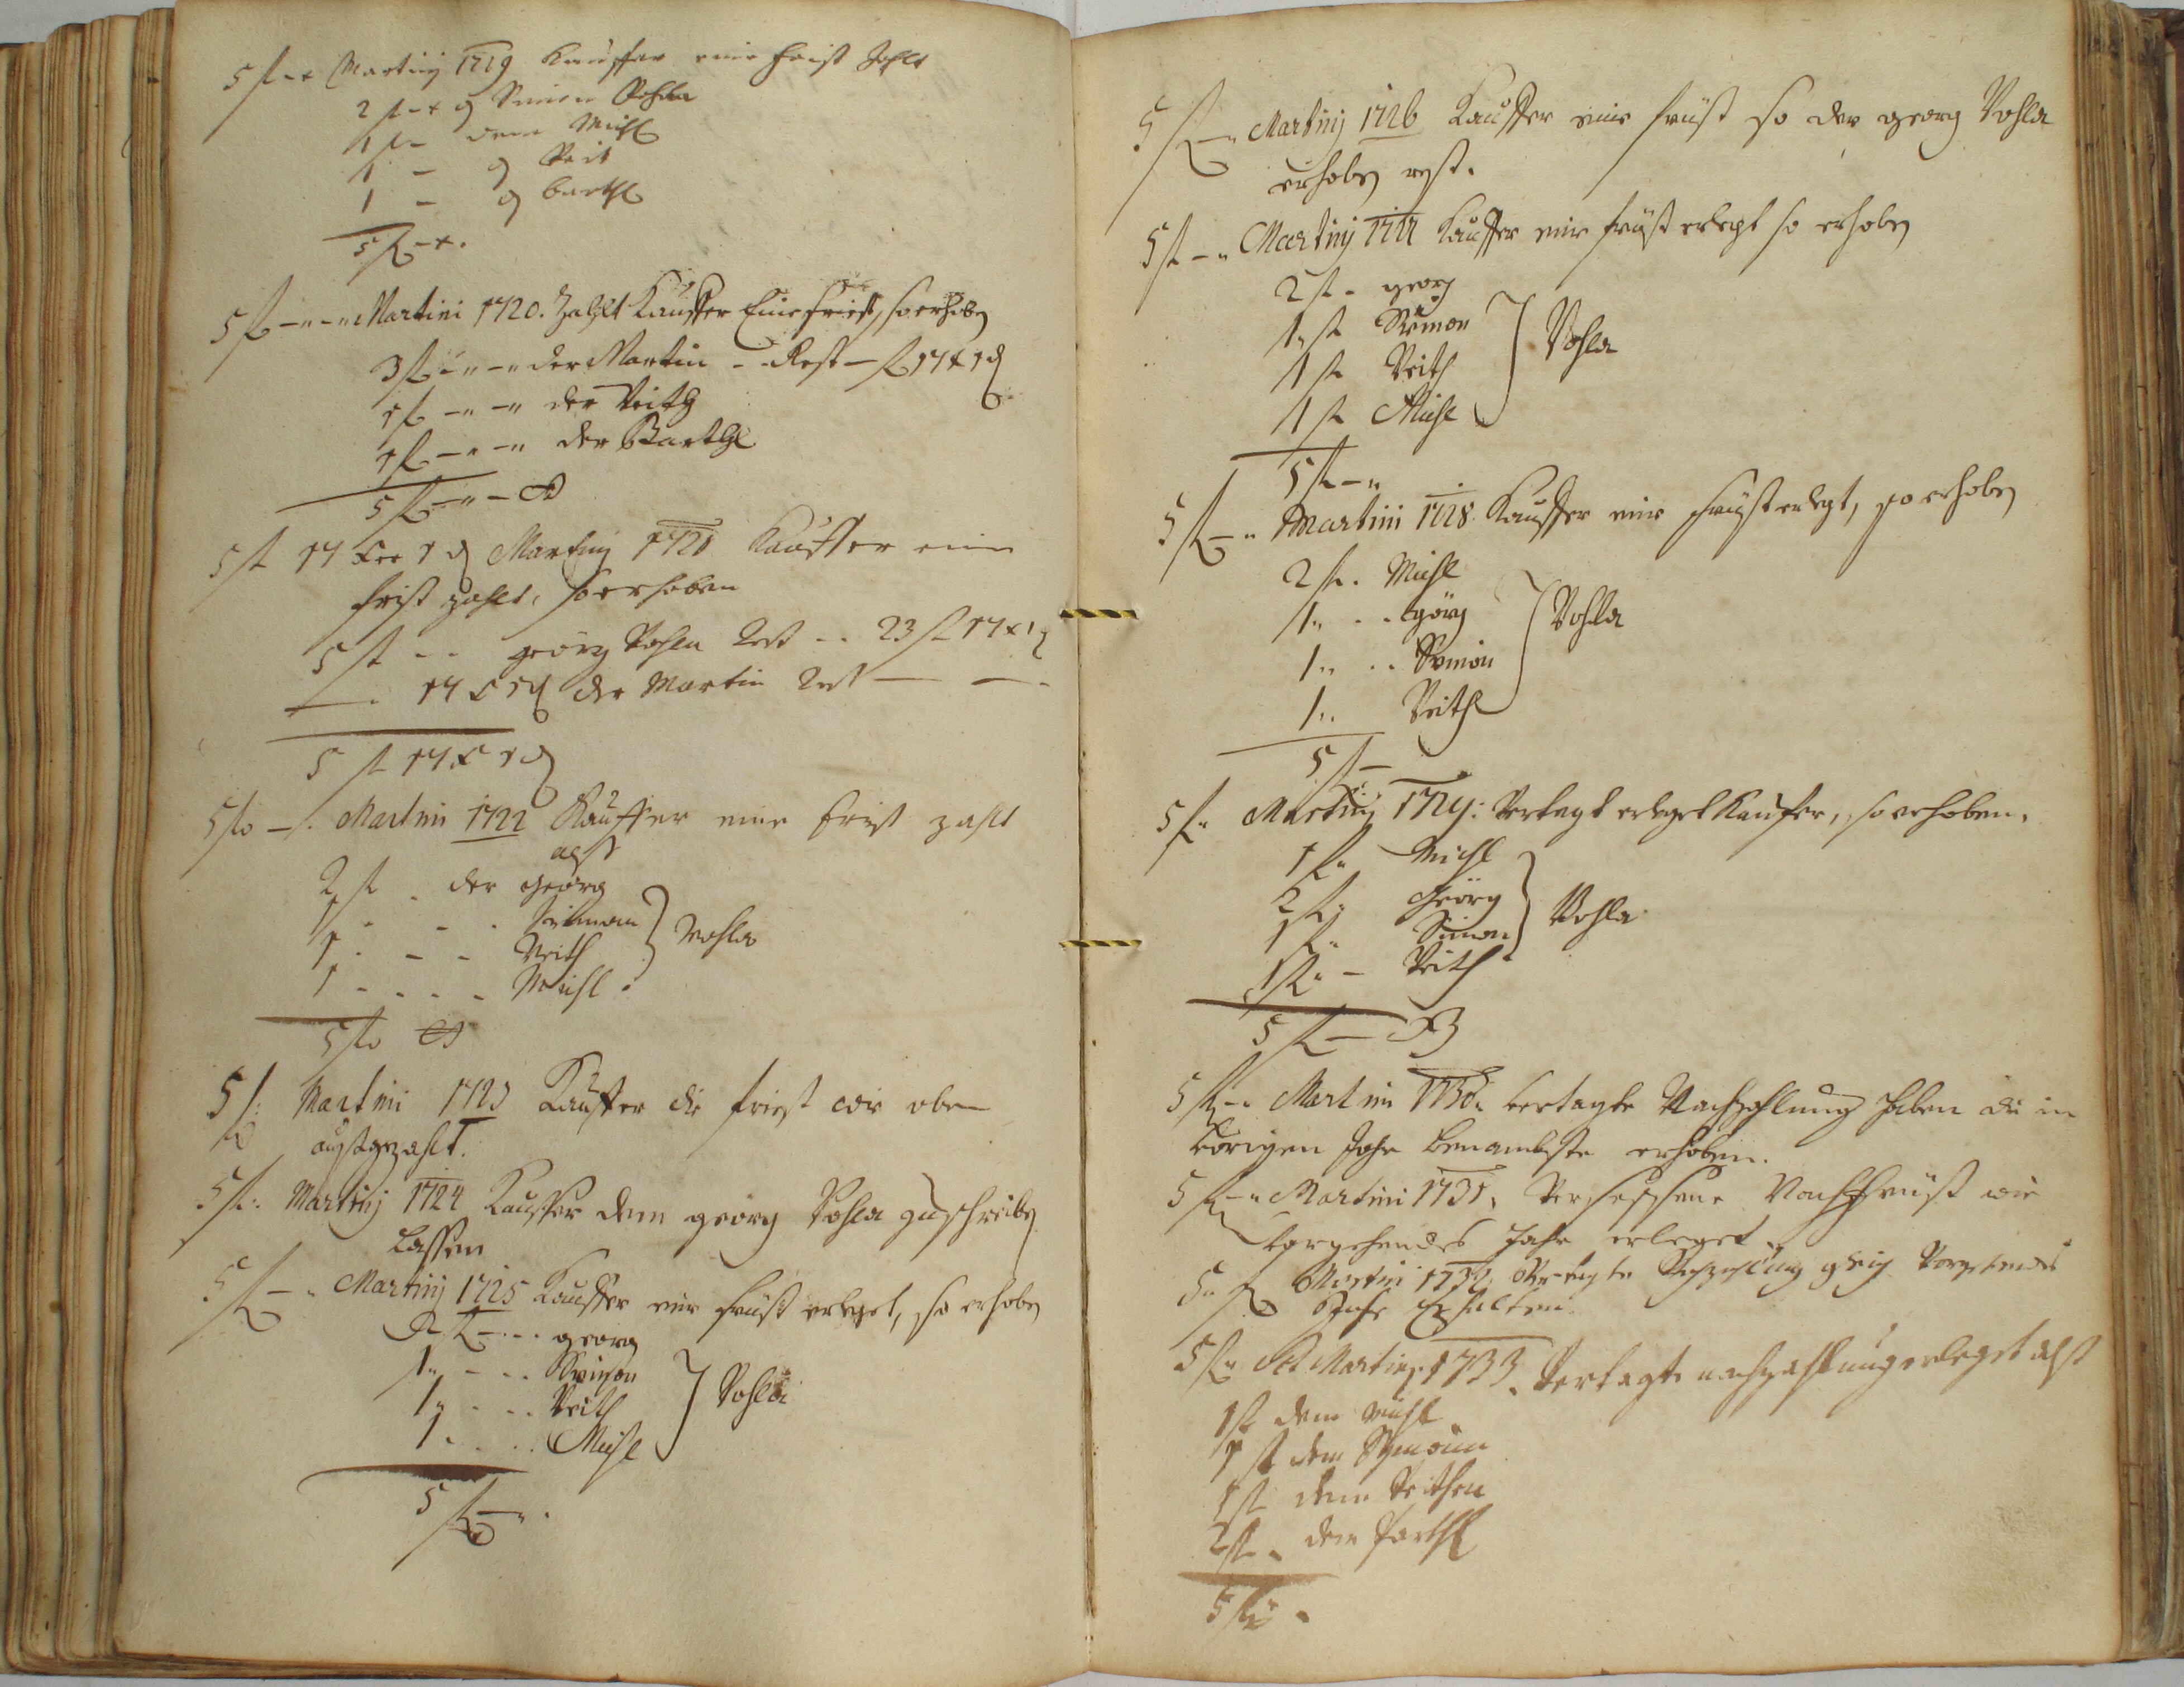 5 fl - x Martiny 1719 Kauffer eine frist Zahlt
2 fl - x d Simon Vohla
1 fl - dem Michl
1 - d Veit
1 - d Barthl
5 fl - x.
5 fl -"-" Martini 1720. Zahlt Kauffer Eine friest, so erhoben
3 fl -"-" der Martin -- Rest - fl 14 x 1 d
1 fl -"-" der Veith
1 fl -"-" der Barthl
5 fl -"-
5 fl 14 xer 1 d Martiny 1721 Kauffer eine
frist zahlt, so erhoben
5 fl -- georg Vohla Rest -- 23 fl 14 x 1 d
- 14 x 1 d der Martin Rest - -
5 fl 14 x 1 d
5 fl -. Martini 1722 Kauffer eine frist zahlt
alß
2 fl . der Georg
1 . - . Siemon
1 . - - Veith } Vohla
1 - . . - Michl .
5 fl
5 fl: Martini 1723 Kauffer die friest wie oben
außgezahlt.
5 fl: Martiny 1724 Kauffer dem georg Vohla zuschreiben
Lassen
5 fl - " Martiny 1725 Kauffer eine früst erleget, so erhoben
2 fl - -- georg
1 " - -- Simon
1 " - -- Veith } Vohla
1 " . . . Michl
5 fl - " .
5 fl - " Martiny 1726 Kauffer eine früst so der georg Vohla
erhoben
5 fl - " Martiny 1727 Kauffer eine früst erlegt so erhoben
2 fl - georg
1 fl Simon
1 fl Veith } Vohla
1 fl Michl
5 fl - "
5 fl - " Martini 1728 Kauffer eine früst erlegt, so erhoben
2 fl . Michl
1 " .. Görg
1 " .. Simon } Vohla
1 " Veith
5 fl -
5 fl " Martiny 1729: Vertagt erlegt Kaufer, so erhoben.
1 fl " Michl
2 fl " Georg
1 fl " Simon } Vohla
1 fl " - Veith
5 fl -
5 fl - " Martini 1730. vertagte Nachzahlung haben die in
vorigen Jahr benambste erhoben.
5 fl - " Martini 1731, Versessene Nachfrüst wie
vorgehendes Jahr erleget.
5 " fl Martini 1732. Vertagte Nachzahlung gleich vorgehendes
Jahr Erhalten.
5 fl " Ad Martiny 1733. Vertagte nachzahlung erleget alß
1 fl dem Michl
1 fl dem Symoun
1 fl dem Veithen
2 fl " dem Parthl
5 fl " .